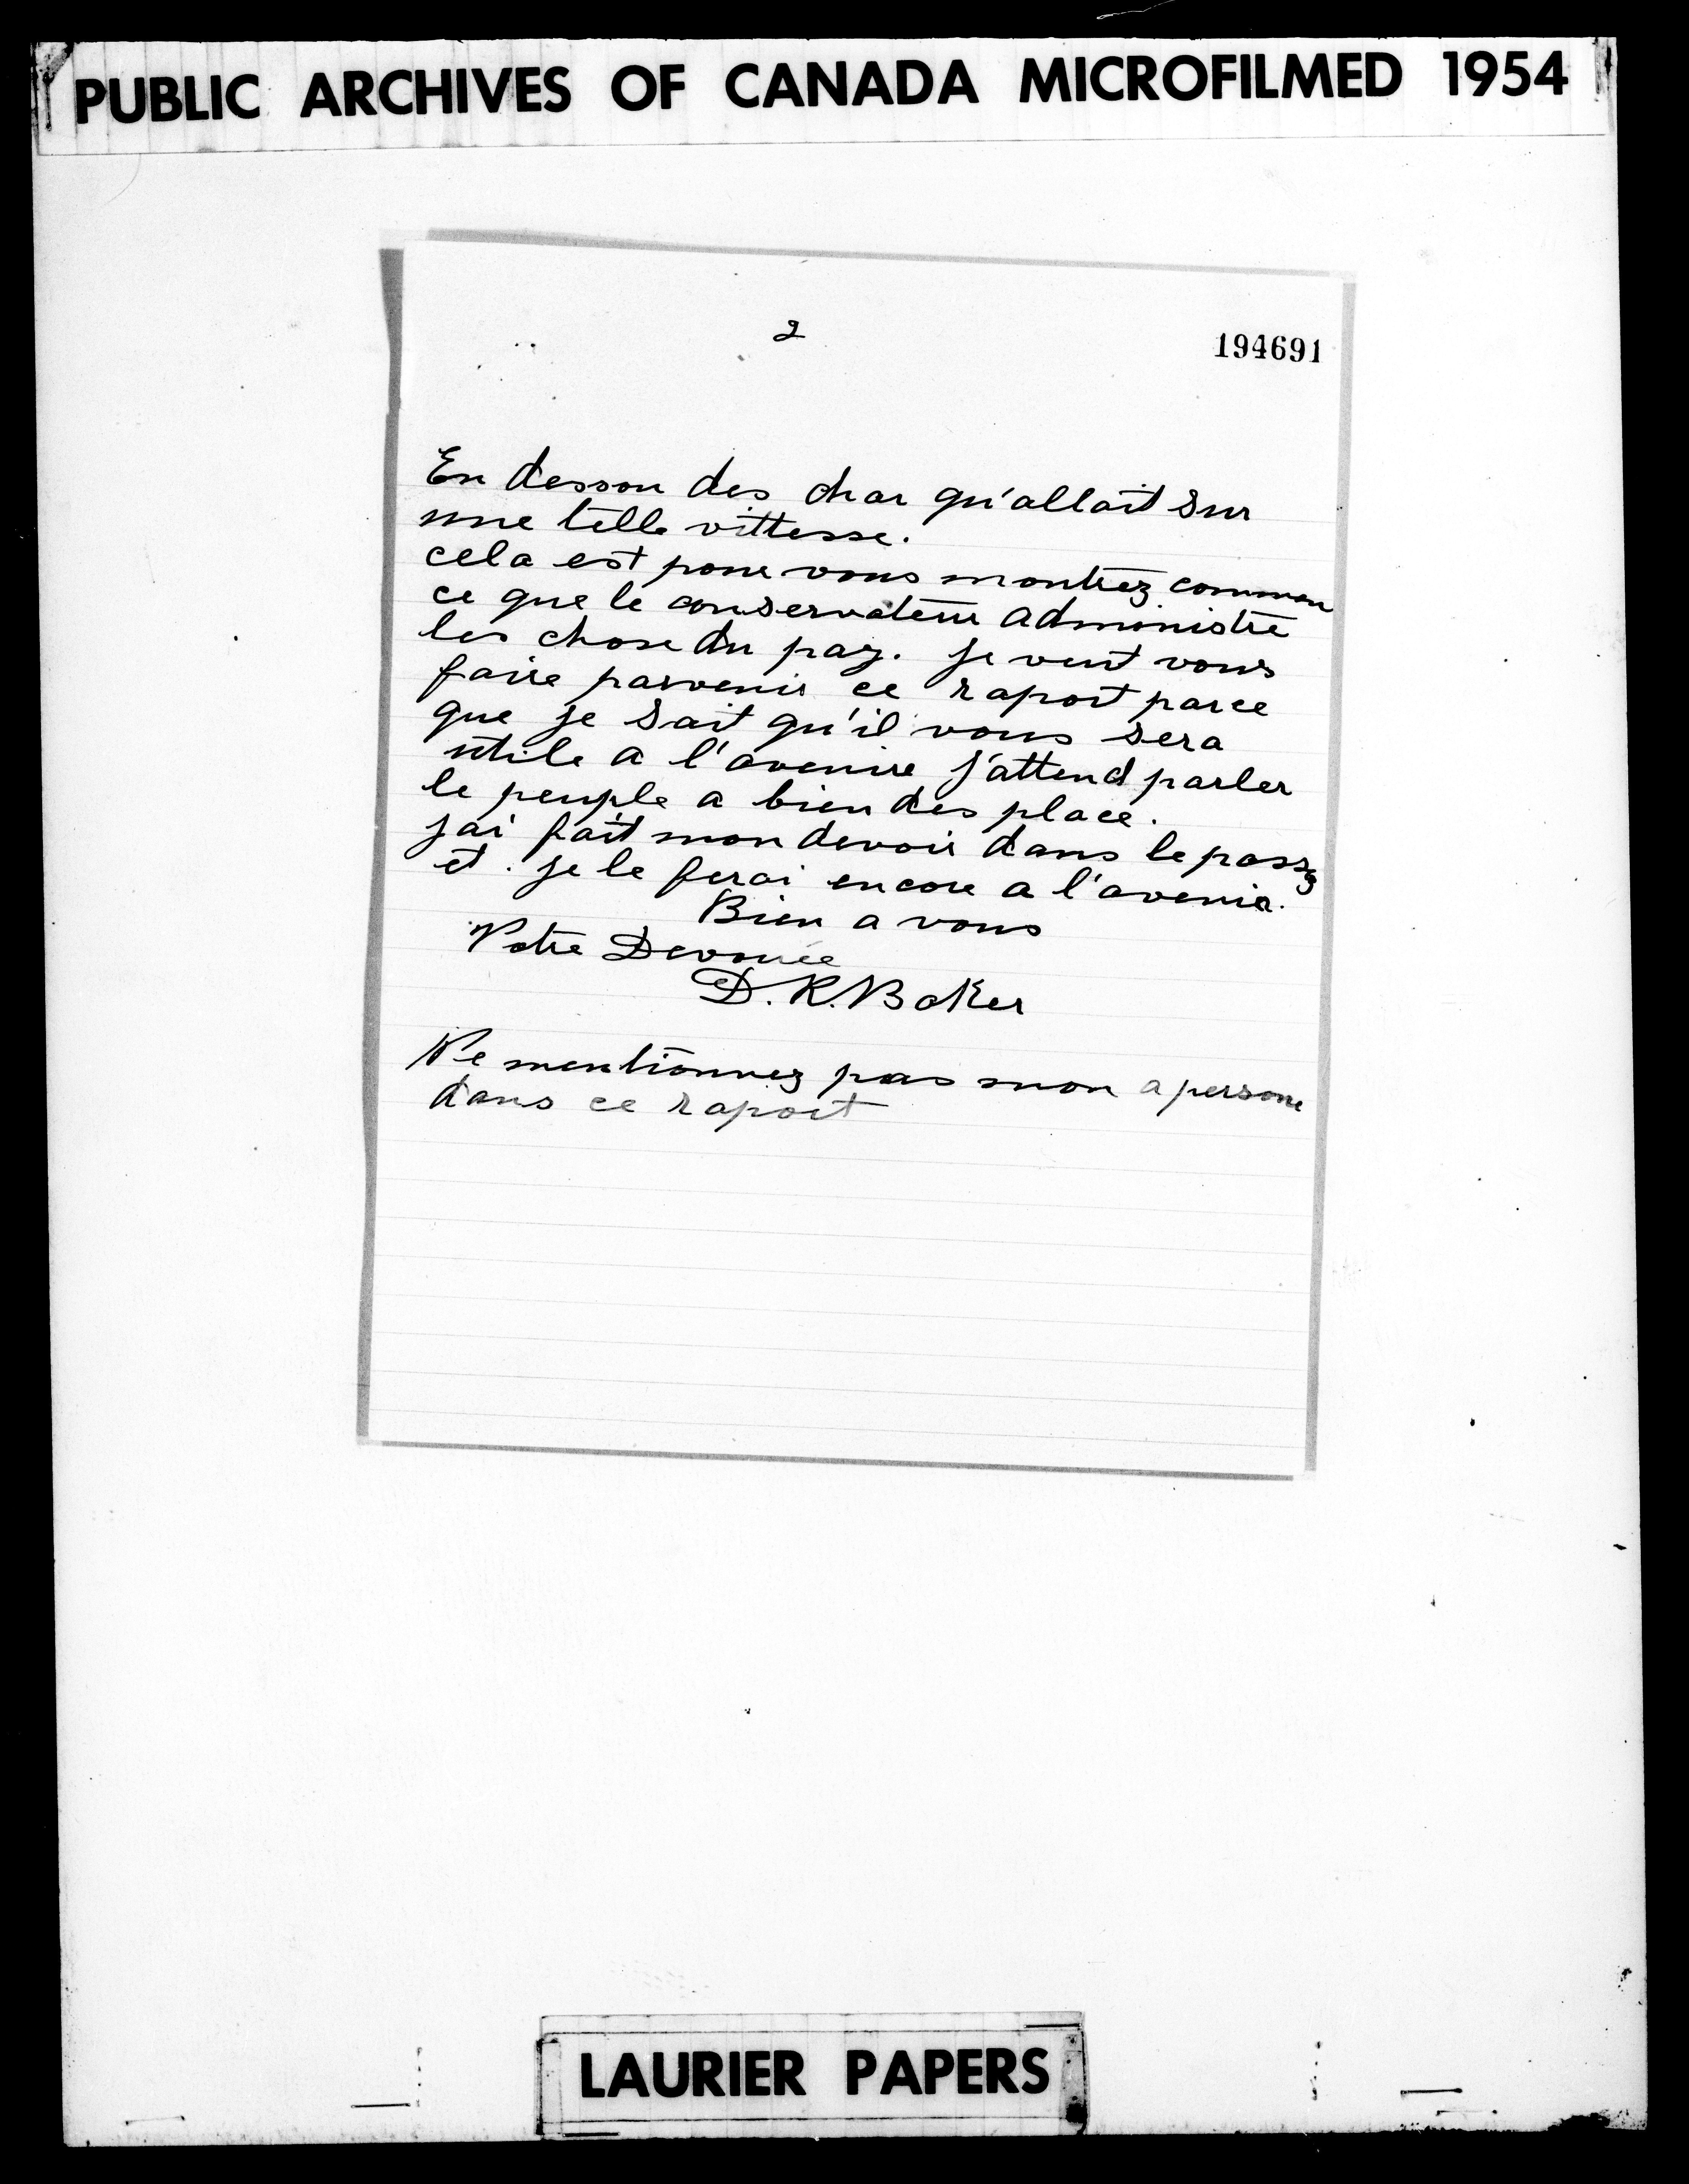 PUBLIC ARCHIVES OF CANADA MICROFILMED 1954
2
194691
En dessou des char qu'allait sur
une telle vittesse.
cela est pour vous montrez commen
ce que le conservateur administre
les chose du pay. je veut vous
faire parvenir ce raport parce
que je sait qu'il vous sera
utile a l'avenire j'attend parler
le peuple a bien des place.
jai fait mon devoir dans le passez
et. je le ferai encore a l'avenir.
Bien a vous
Votre Devouée
D. R. Baker
Ne mentionnez pas mon a persone
dans ce raport
LAURIER PAPERS